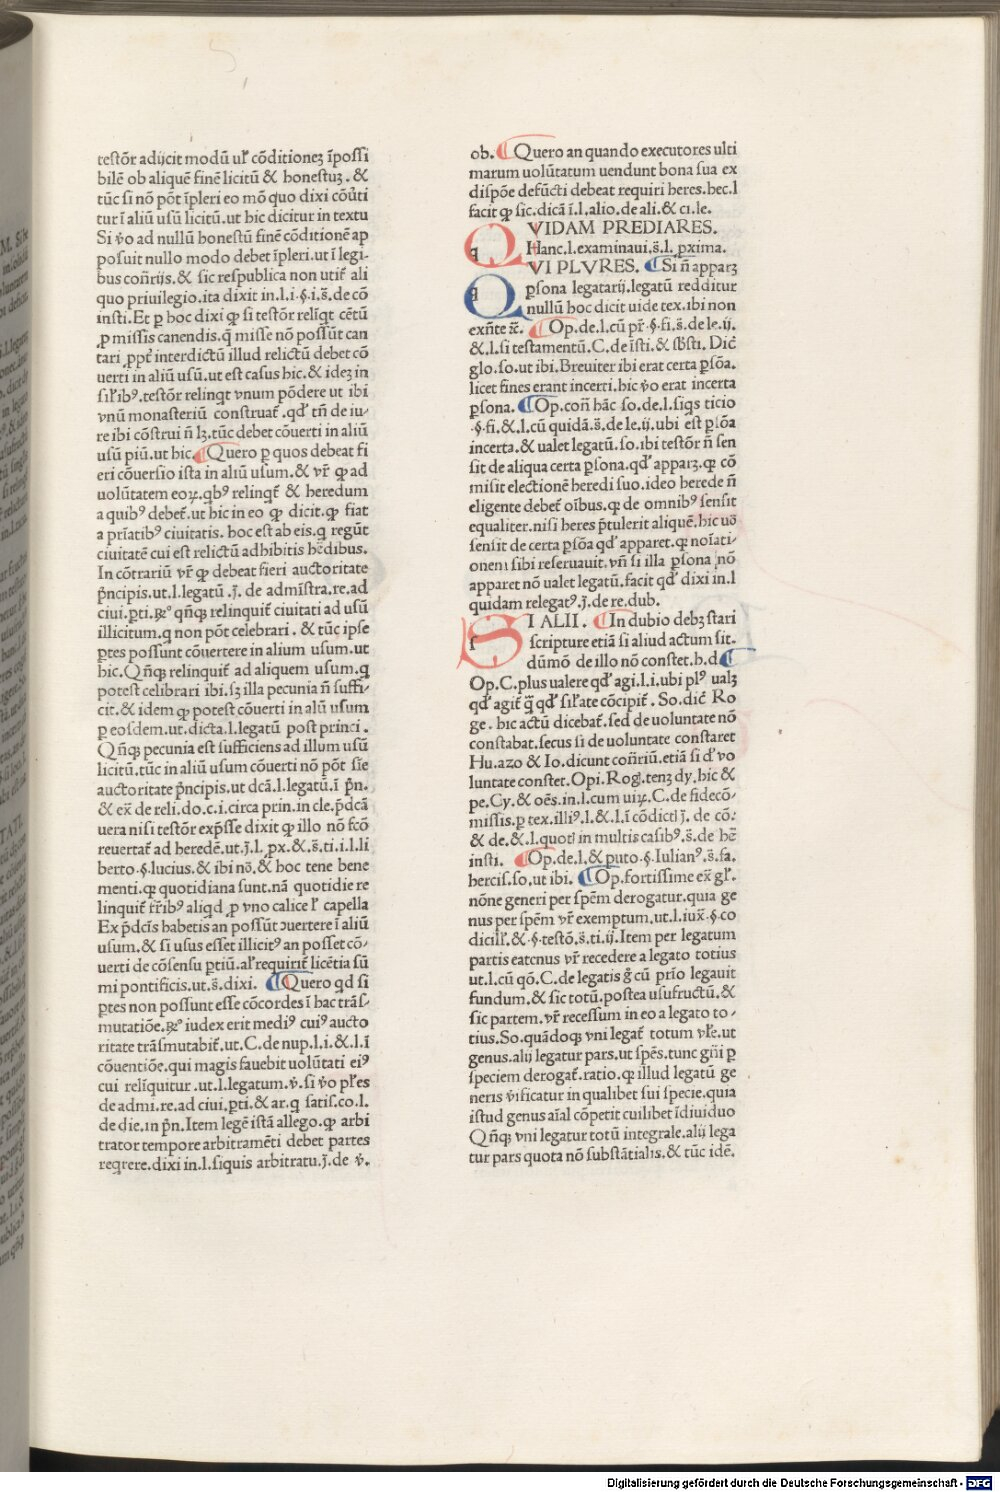 testo᷒r adijcit modū ul̛ cōditionez īpossi
bilē ob aliquē finē licitū & honestuz . &
tūc si nō pōt īpleri eo mō quo dixi cōu̇ti
tur ī aliū usū licitū . ut hic dicitur in textu
Si v̇o ad nullū honestū finē cōditionē ap
posuit nullo modo debet īpleri . ut ī legi-
bus con̄rijs . & sic respublica non utit᷒ ali
quo priuilegio . ita dixit in . l . i . § . i . s̄ . de cō
insti . Et ꝑ hoc dixi ꝙ si testōr relīqt cētū
ꝓ missis canendis . q̄ misse nō possūt can
tari . ꝓpt᷒ interdictū illud relictū debet cō
uerti in aliū usū . ut est casus hic . & idez in
sil̛ibꝰ . testōr relinqt vnum pōdere ut ibi
vnū monasteriū construat᷒ . qd̛ tn̄ de iu-
re ibi cōstrui n̄ lz . tūc debet cōuerti in aliū
usū piū . ut hic . ¶ Quero ꝑ quos debeat fi
eri cōuersio ista in aliū usum . & vr̄ ꝙ ad
uolūtatem eoꝝ . qbꝰ relinqt᷒ & heredum
a quibꝰ debet᷒ . ut hic in eo ꝙ dicit . ꝙ fiat
a prīatibꝰ ciuitatis . hoc est ab eis . q regūt
ciuitatē cui est relictū adhibitis hēdibus .
In cōtrariū vr̄ ꝙ debeat fieri auctoritate
p̄ncipis . ut . l . legatū . j̄ . de admīstra . re . ad
ciui . ꝑti . ꝶꝰ qn̄qꝫ relinquit᷒ ciuitati ad usū
illicitum . q non pōt celebrari . & tūc ipse
ꝑtes possunt cōuertere in alium usum . ut
hic . Qn̄qꝫ relinquit᷒ ad aliquem usum . q
potest celibrari ibi . sz illa pecunia n̄ suffi-
cit . & idem ꝙ potest cōuerti in alū usum
ꝑ eosdem . ut . dicta . l . legatū post princi .
Qn̄qꝫ pecunia est sufficiens ad illum usū
licitū . tūc in aliū usum cōuerti nō pōt sīe
auctoritate p̄ncipis . ut dcā . l . legatū . ī p̄n .
& ex̄ de reli . do . c . i . circa prin . in cle . p̄dcā
uera nisi testōr exp̄sse dixit ꝙ illo nō fcō
reuertat᷒ ad heredē . ut . j̄ . l . ꝓx . & . s̄ . ti . i . l . li
berto . § . lucius . & ibi nō . & hoc tene bene
menti . ꝙ quotidiana sunt . nā quotidie re
linquit᷒ fr̄ibꝰ aliqd ꝓ vno calice l̛ capella
Ex p̄dcīs habetis an possūt ɔuertere ī aliū
usum . & si usus esset illicitꝰ an posset cō-
uerti de cōsensu ꝑtiū . al̛ requirit᷒ licētia sū
mi pontificis . ut . s̄ . dixi . ¶ Quero qd si
ꝑtes non possunt esse cōcordes ī hac trās-
mutatiōe . ꝶꝰ iudex erit mediꝰ cuiꝰ aucto
ritate trāsmutabit᷒ . ut . C . de nup . l . i . & . l . ī
cōuentiōe . qui magis fauebit uolūtati eiꝰ
cui relīquitur . ut . l . legatum . v̇ . si v̇o pl̛es
de admi . re . ad ciui . ꝑti . & ar . q satis . co . l .
de die . in p̄n . Item legē istā allego . ꝙ arbi
trator tempore arbitramēti debet partes
reqrere . dixi in . l . siquis arbitratu . j̄ . de v̇ .
ob . ¶ Quero an quando executores ulti
marum uolūtatum uendunt bona sua ex
dispōe defūcti debeat requiri heres . hec . l
facit ꝙ sic . dicā ī . l . alio . de ali . & ci . le .
QVIDAM PREDIARES .
Hanc . l . examinaui . s̄ . l . ꝓxima .
QVI PLVRES . ¶ Si n̄ apparz
ꝑsona legatarij . legatū redditur
nullū hoc dicit uide tex . ibi non
exn̄te ⁊c̄ . ¶ Op . de . l . cū pr̄ . § . fi . s̄ . de le . ij .
& . l . si testamentū . C . de īsti . & sb̄sti . Dic̄
glo . so . ut ibi . Breuiter ibi erat certa ꝑsōa .
licet fines erant incerti . hic v̇o erat incerta
ꝑsona . ¶ Op . con̄ hāc so . de . l . siqs ticio
. § . fi . & . l . cū quidā . s̄ . de le . ij . ubi est ꝑsōa
incerta . & ualet legatū . so . ibi testōr n̄ sen
sit de aliqua certa ꝑsona . qd̛ apparz . ꝙ cō
misit electionē heredi suo . ideo herede n̄
eligente debet᷒ oībus . ꝙ de omnibꝰ sensit
equaliter . nisi heres p̄tulerit aliquē . hic uō
sensit de certa ꝑsōa qd̛ apparet . ꝙ noīati-
onem sibi reseruauit . vn̄ si illa ꝑsona nō
apparet nō ualet legatū . facit qd̛ dixi in . l
quidam relegatꝰ . j̄ . de re . dub .
SI ALII . ¶ In dubio debz stari
scripture etiā si aliud actum sit .
dūmō de illo nō constet . h . d . ¶
Op . C . plus ualere qd̛ agi . l . i . ubi plꝰ ualz
qd̛ agit᷒ q̄ qd̛ sil̛ate cōcipit᷒ . So . dic̄ Ro
ge . hic actū dicebat᷒ . sed de uoluntate nō
constabat . secus si de uoluntate constaret
Hu . azo & Io . dicunt con̄riū . etiā si d̛ vo
luntate constet . Opi . Rog̛ . tenz dy . hic &
pe . Cy . & oēs . in . l . cum uiꝝ . C . de fidecō-
missis . ꝑ tex . illiꝰ . l . & . l . ī cōdictī j̄ . de cō :
& de . & . l . quotī in multis casibꝰ . s̄ . de hē
insti . ¶ Op . de . l . & puto . § . Iulianꝰ . s̄ . fa .
hercis . so . ut ibi . ¶ Op . fortissime ex̄ gl̛ .
nōne generi per spēm derogatur . quia ge
nus per spēm vr̄ exemptum . ut . l . iux̄ . § . co
dicill̛ . & . § . testō . s̄ . ti . ij . Item per legatum
partis eatenus vr̄ recedere a legato totius
ut . l . cū qō . C . de legatis ḡ cū prīo legauit
fundum . & sic totū . postea usufructū . &
sic partem . vr̄ recessum in eo a legato to-
tius . So . quādoqꝫ vni legat᷒ totum vl̛e . ut
genus . alij legatur pars . ut spēs . tunc gn̄i ꝑ
speciem derogat᷒ . ratio . ꝙ illud legatū ge
neris v̇ificatur in qualibet sui specie . quia
istud genus aīal cōpetit cuilibet īdiuiduo
Qn̄qꝫ vni legatur totū integrale . alij lega
tur pars quota nō substātialis . & tūc idē .
Digitalisierung gefördert durch die Deutsche Forschungsgemeinschaft - DFG